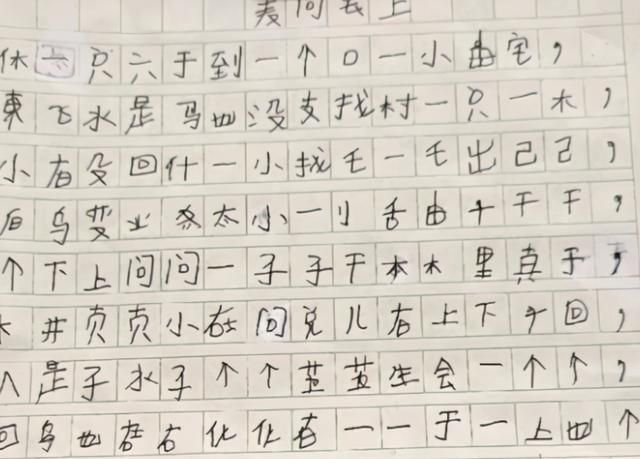 问上
休六只六于到一个口一小由宅，
東飞水是马也没支找村一只一木，
小右没回什一小找毛一毛出己己，
后鸟变业务太小一小舌由十干干，
个下上问问一子子干本木里真于，
井页页小在问兑儿右上下个回，
人是子水子个个茧茧生会一个个，
回鸟也在右化化右一一于一上也个